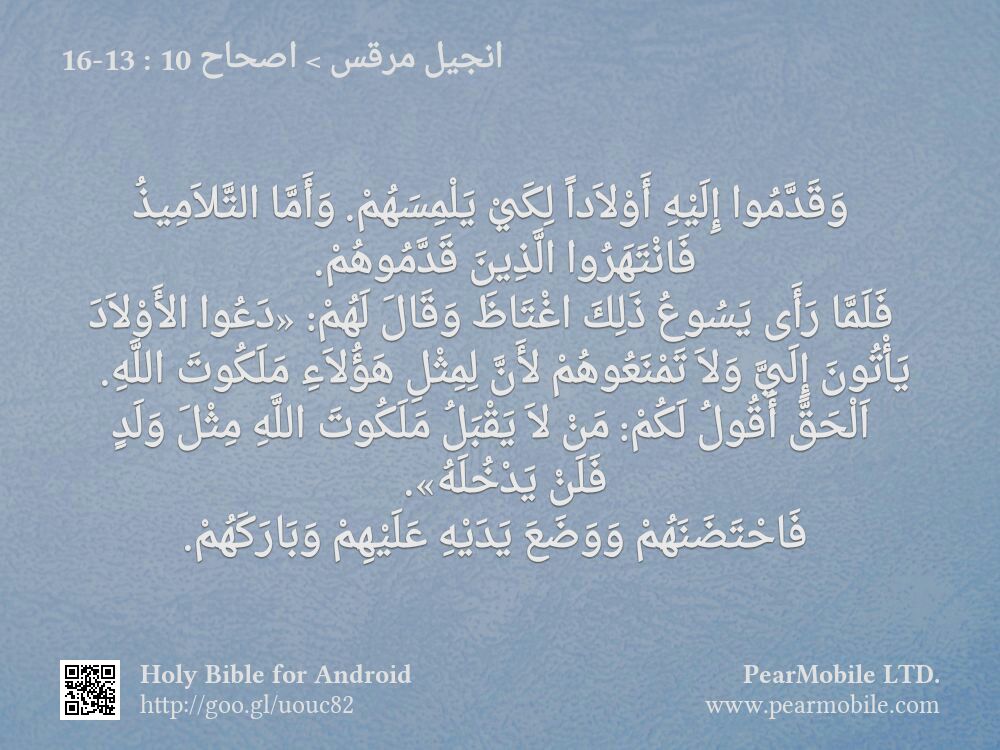 انجيل مرقس > اصحاح 10 : 13-16
وَقَدَّمُوا إِلَيْهِ أَوْلاَداً لِكَيْ يَلْمِسَهُمْ. وَأَمَّا التَّلاَمِيذُ
فَانْتَهَرُوا الَّذِينَ قَدَّمُوهُمْ.
فَلَمَّا رَأَى يَسُوعُ ذَلِكَ اغْتَاظَ وَقَالَ لَهُمْ: «دَعُوا الأَوْلاَدَ
يَأْتُونَ إِلَيَّ وَلاَ تَمْنَعُوهُمْ لأَنَّ لِمِثْلِ هَؤُلاَءِ مَلَكُوتَ اللَّهِ.
اَلْحَقَّ أَقُولُ لَكُمْ: مَنْ لاَ يَقْبَلُ مَلَكُوتَ اللَّهِ مِثْلَ وَلَدٍ
فَلَنْ يَدْخُلَهُ».
فَاحْتَضَنَهُمْ وَوَضَعَ يَدَيْهِ عَلَيْهِمْ وَبَارَكَهُمْ.
Holy Bible for Android
http://goo.gl/uouc82
PearMobile LTD.
www.pearmobile.com